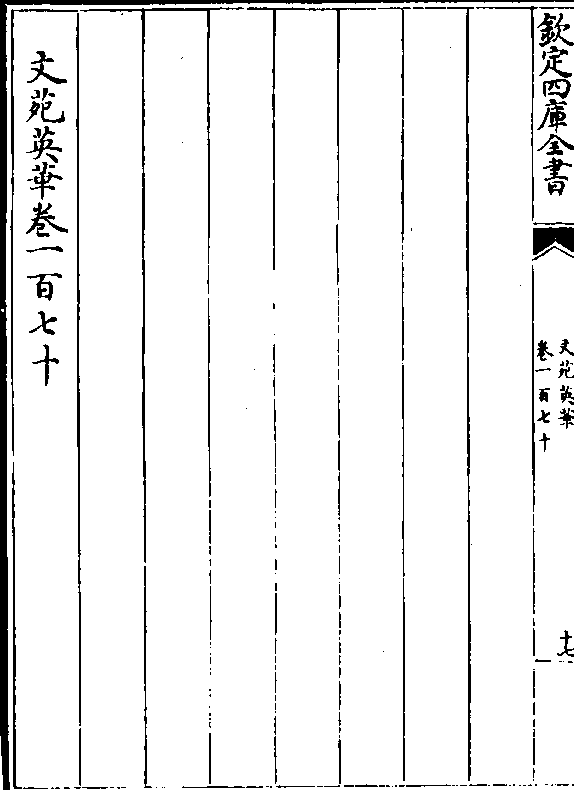 欽定四庫全書
文苑英華
卷一百七十
十七
文苑英華卷一百七十